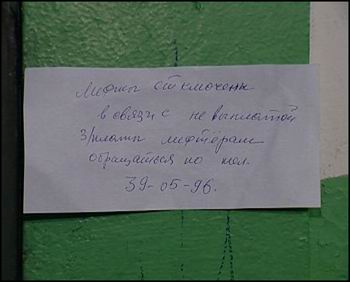 Лифты отключены
в связи с не выплатой
з/платы лифтёрам
обращаться по тел.
39-05-96.